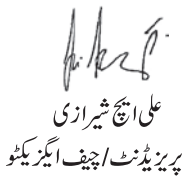 علی ایچ شیرازی
پریزیڈنٹ/چیف ایگزیکٹو